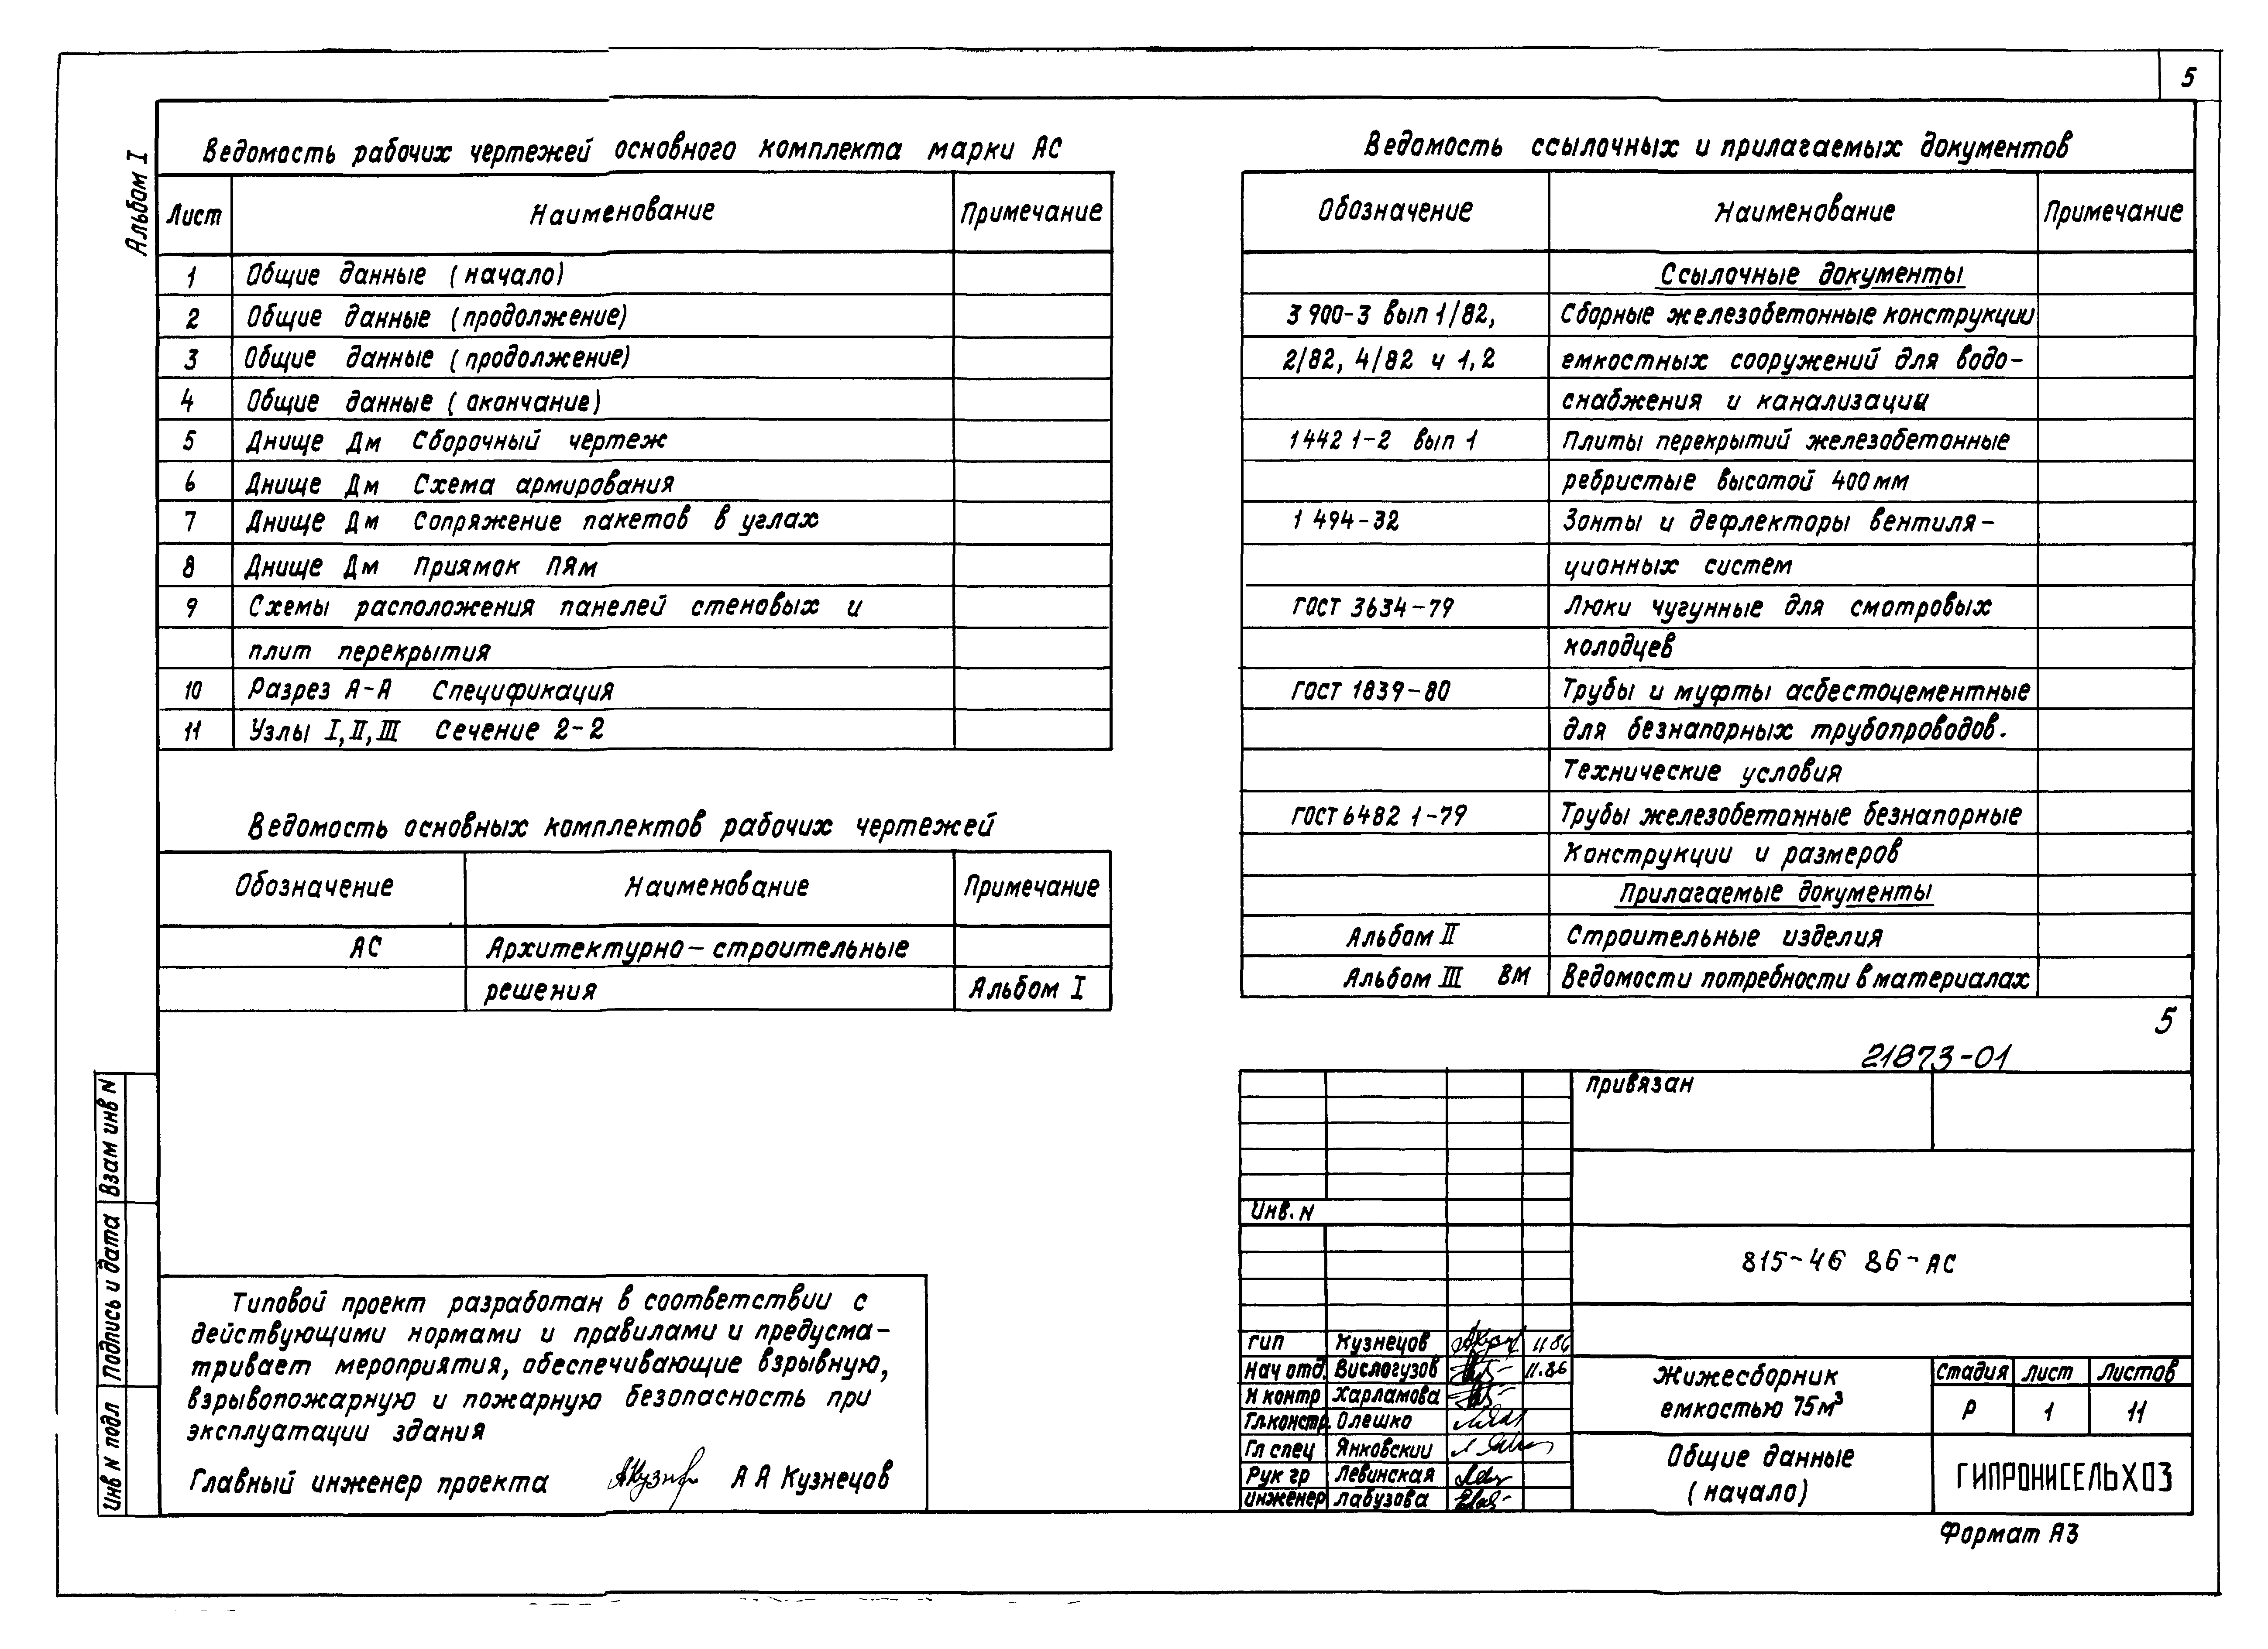 5
Альбом I
Ведомость рабочих чертежей основного комплекта марки АС
Лист Наименование Примечание
1 Общие данные (начало)
2 Общие данные (продолжение)
3 Общие данные (продолжение)
4 Общие данные (окончание)
5 Днище Дм Сборочный чертеж
6 Днище Дм Схема армирования
7 Днище Дм Сопряжение пакетов в углах
8 Днище Дм Приямок ПЯм
9 Схемы расположения панелей стеновых и
плит перекрытия
10 Разрез А-А Спецификация
11 Узлы I, II, III Сечение 2-2
Ведомость основных комплектов рабочих чертежей
Обозначение Наименование Примечание
АС Архитектурно-строительные
решения Альбом I
Ведомость ссылочных и прилагаемых документов
Обозначение Наименование Примечание
Ссылочные документы
3 900-3 вып 1/82, Сборные железобетонные конструкции
2/82, 4/82 ч 1,2 емкостных сооружений для водо-
снабжения и канализации
1 442 1-2 вып 1 Плиты перекрытий железобетонные
ребристые высотой 400 мм
1 494-32 Зонты и дефлекторы вентиля-
ционных систем
ГОСТ 3634-79 Люки чугунные для смотровых
колодцев
ГОСТ 1839-80 Трубы и муфты асбестоцементные
для безнапорных трубопроводов.
Технические условия
ГОСТ 6482 1-79 Трубы железобетонные безнапорные
Конструкции и размеров
Прилагаемые документы
Альбом II Строительные изделия
Альбом III ВМ Ведомости потребности в материалах
5
21873-01
Взам инв N
Подпись и дата
Инв N подл
Типовой проект разработан в соответствии с
действующими нормами и правилами и предусма-
тривает мероприятия, обеспечивающие взрывную,
взрывопожарную и пожарную безопасность при
эксплуатации здания
Главный инженер проекта А А Кузнецов
Привязан
Инв. N
815-46 86-АС
ГИП Кузнецов 11 86
Нач отд. Вислогузов 11.86
Н контр Харламова
Гл.констр. Олешко
Гл спец Янковский
Рук гр Левинская
Инженер Лабузова
Жижесборник
емкостью 75м³
Стадия Лист Листов
Р 1 11
Общие данные
(начало)
ГИПРОНИСЕЛЬХОЗ
Формат А3